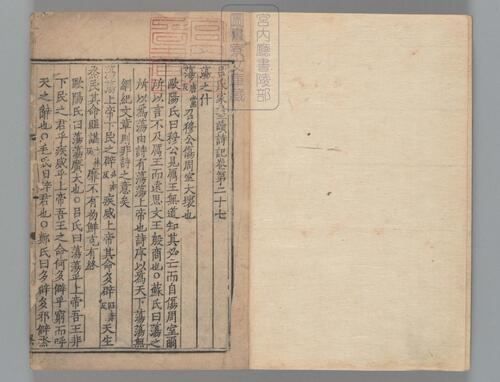 呂氏家塾讀詩記卷第二十七
蕩之什
蕩召穆公傷周室大壞也
歐陽氏曰穆公見厲王無道知其必亡而自傷周室爾
所以言不及厲王而遠思文王殷商也○蘇氏曰蕩之
所以為蕩由詩有蕩蕩上帝也詩序以為天下蕩蕩無
綱紀文章則非詩之意矣
蕩蕩上帝下民之辟疾威上帝其命多辟天生
烝民其命匪諶靡不有初鮮克有終
歐陽氏曰蕩蕩廣大也○呂氏曰蕩蕩乎上帝吾王非
下民之君乎疾威乎上帝吾王之命何多僻乎窮而呼
天之辭也○毛氏曰辟君也○鄭氏曰多辟多邪僻
宮内廳書陵部